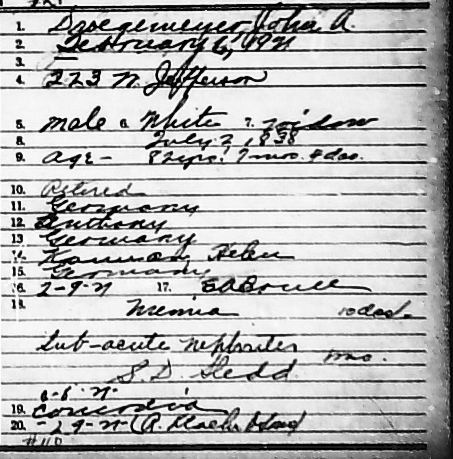 1. Droegemeyer, John A.
2. February 6, 1921
3.
4. 223 N. Jefferson
5. Male 6. White 7. Widow
8. July 2, 1838
9. Age - 82 yrs. 7 mos. 4 das.
10. Retired
11. Germany
12. Anthony
13. Germany
14. Helen
15. Germany
16. 2-9-21 17. E A Bruce
18. Uremia 10 das.
Sub-acute Nephrites mo.
S. D.
2-6-21
19. Concordia
20. 2-9-21 (A.
#110